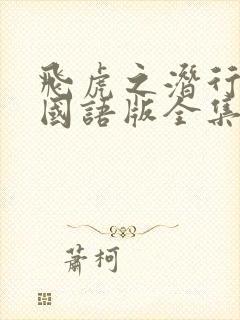 飛虎之潛行
國語版全集
蕭柯